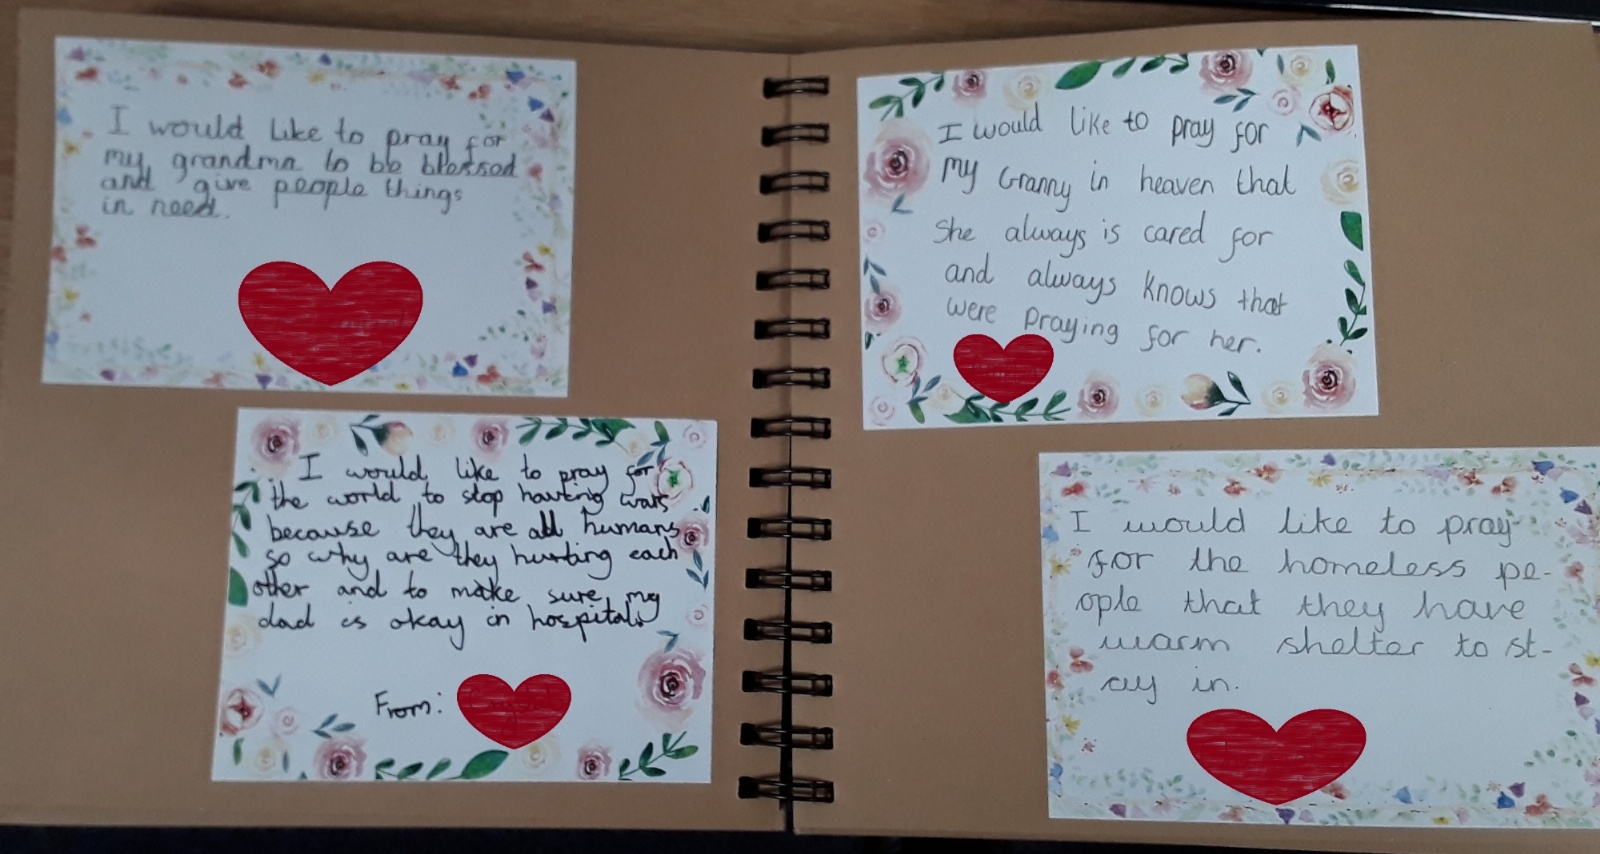 I would like to pray for
my grandma to be blessed
and give people things
in need.
I would like to pray for
the world to stop having wars
because they are all humans
so why are they hurting each
other and to make sure my
dad is okay in hospital.
From:
I would like to pray for
my Granny in heaven that
She always is cared for
and always knows that
were praying for her.
I would like to pray
for the homeless pe-
ople that they have
warm shelter to st-
ay in.